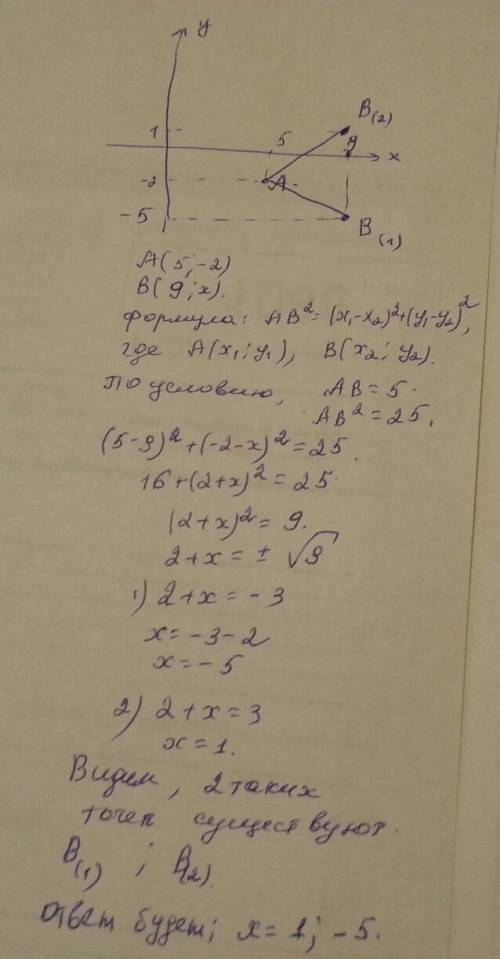 y
B(2)
1
5
9
x
-2
A
-5
B(1)
A(5;-2)
B(9;x).
Формула: AB²=(x₁-x₂)²+(y₁-y₂)²,
где A(x₁;y₁), B(x₂;y₂).
По условию, AB=5.
AB²=25.
(5-9)²+(-2-x)²=25.
16+(2+x)²=25.
(2+x)²=9.
2+x=±√9
1) 2+x=-3
x=-3-2
x=-5
2) 2+x=3
x=1.
Видим, 2 таких
точек существуют.
B(1) ; B(2).
Ответ будет; x=1; -5.